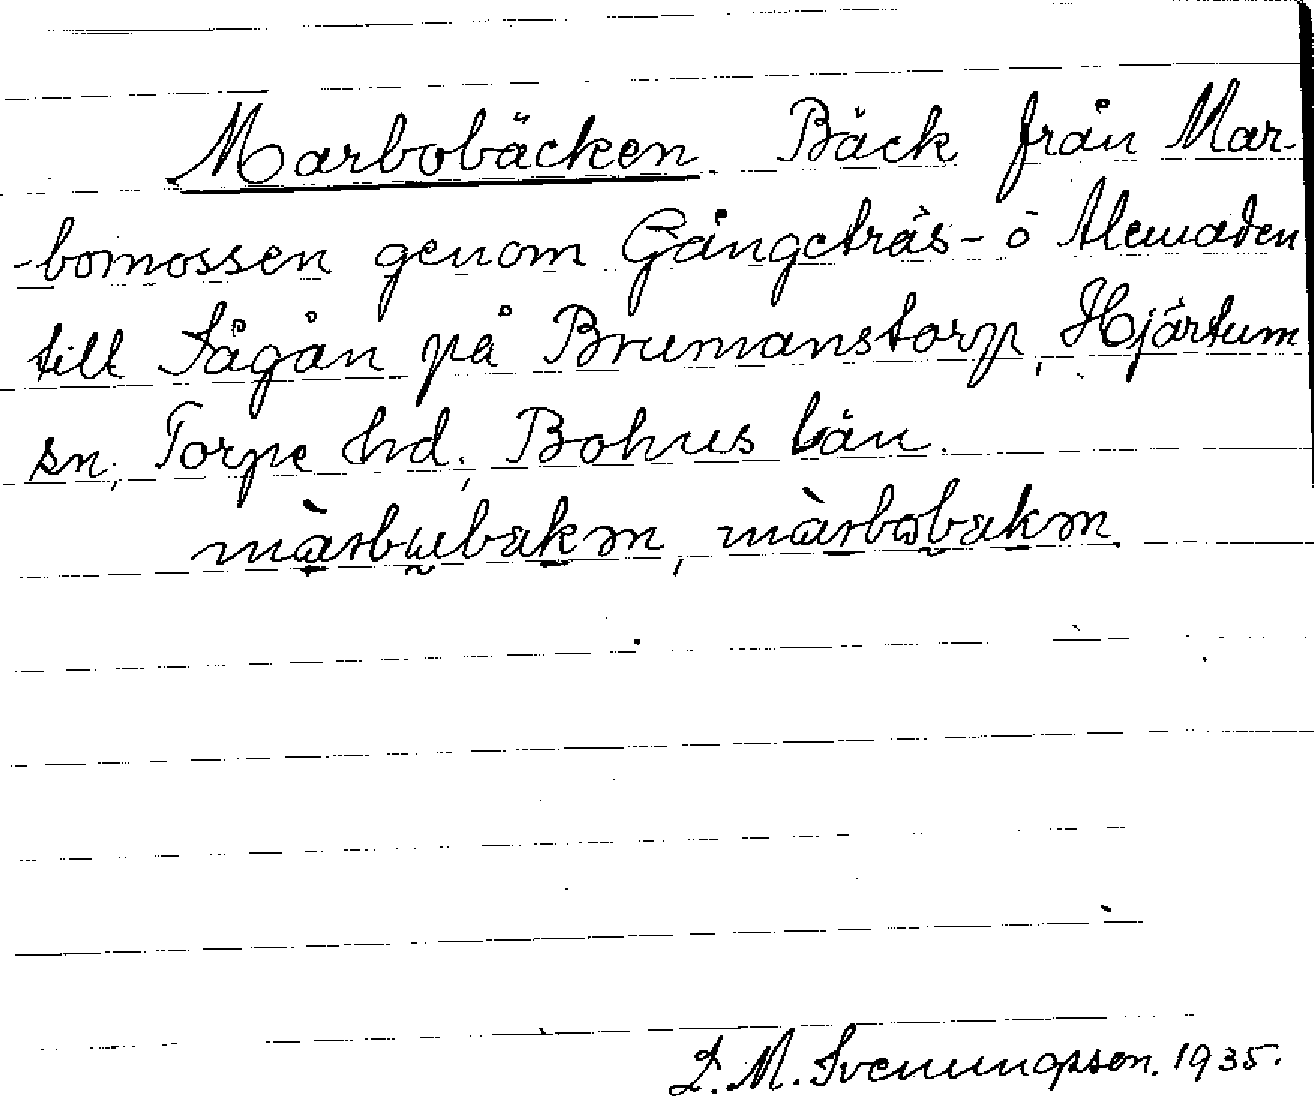 Marbobäcken. Bäck från Mar-
-bomossen genom Gångeträs- o Alemaden
till Sågån på Brumanstorp, Hjärtum
sn; Torpe hd; Bohus län.
L. M. Svenungsson. 1935.